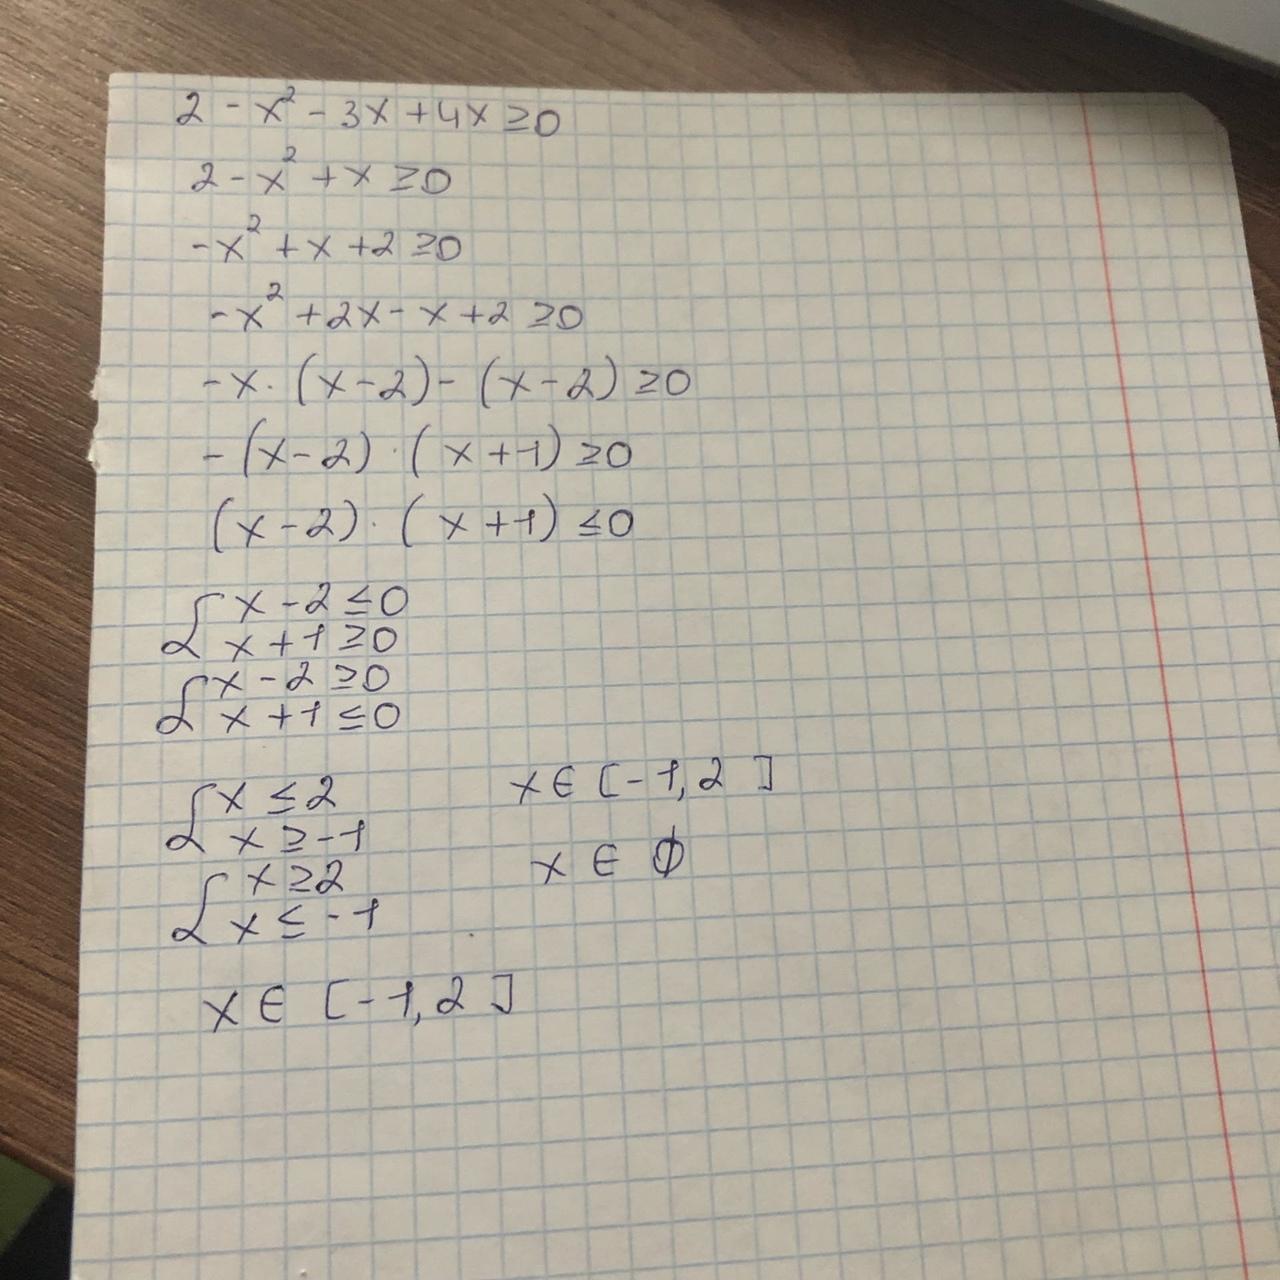 2 - x² - 3x + 4x ≥ 0
2 - x² + x ≥ 0
-x² + x + 2 ≥ 0
-x² + 2x - x + 2 ≥ 0
-x · (x - 2) - (x - 2) ≥ 0
-(x - 2) · (x + 1) ≥ 0
(x - 2) · (x + 1) ≤ 0
{ x - 2 ≤ 0
x + 1 ≥ 0
{ x - 2 ≥ 0
x + 1 ≤ 0
{ x ≤ 2 x ∈ [-1, 2]
x ≥ -1
{ x ≥ 2 x ∈ ∅
x ≤ -1
x ∈ [-1, 2]